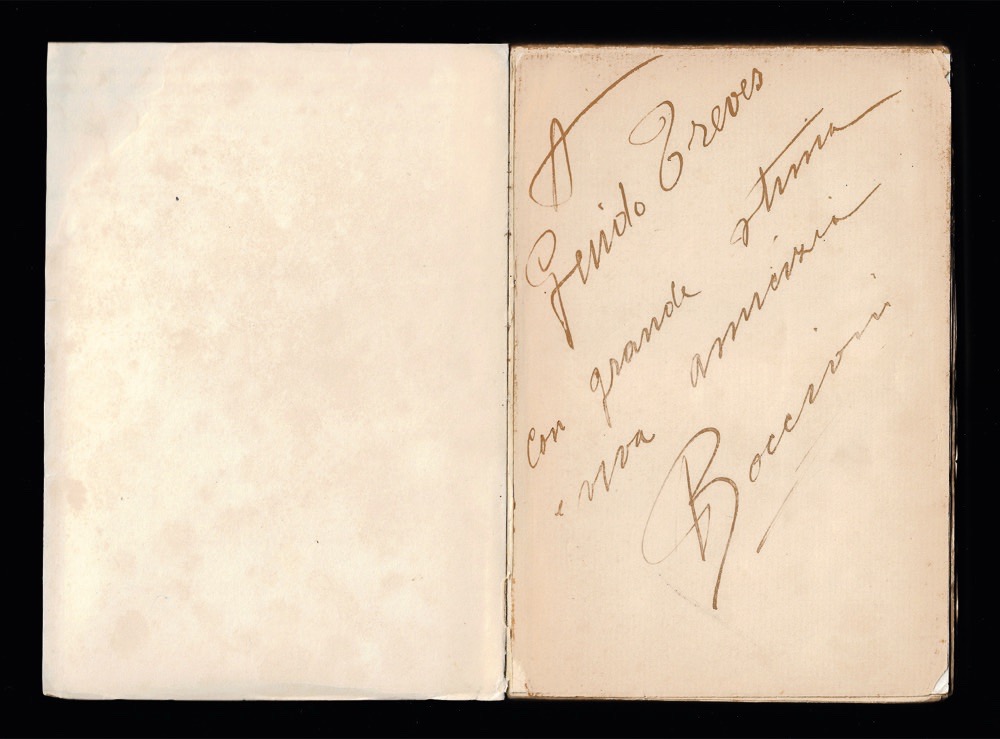 A
Guido Treves
con grande stima
e viva amicizia
Boccioni